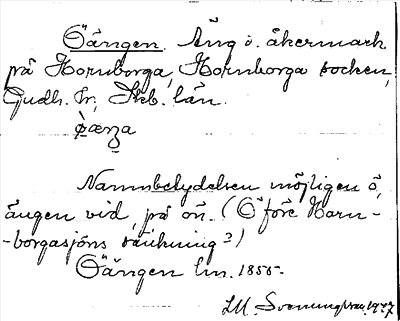 Öängen. Äng o. åkermark
på Hornborga, Hornborga socken,
Gudh. hr, Skb. län.
Namnbetydelsen möjligen ö,
ängen vid, på ön. (Ö före Horn-
-borgasjöns sänkning?)
Öängen lm. 1855-